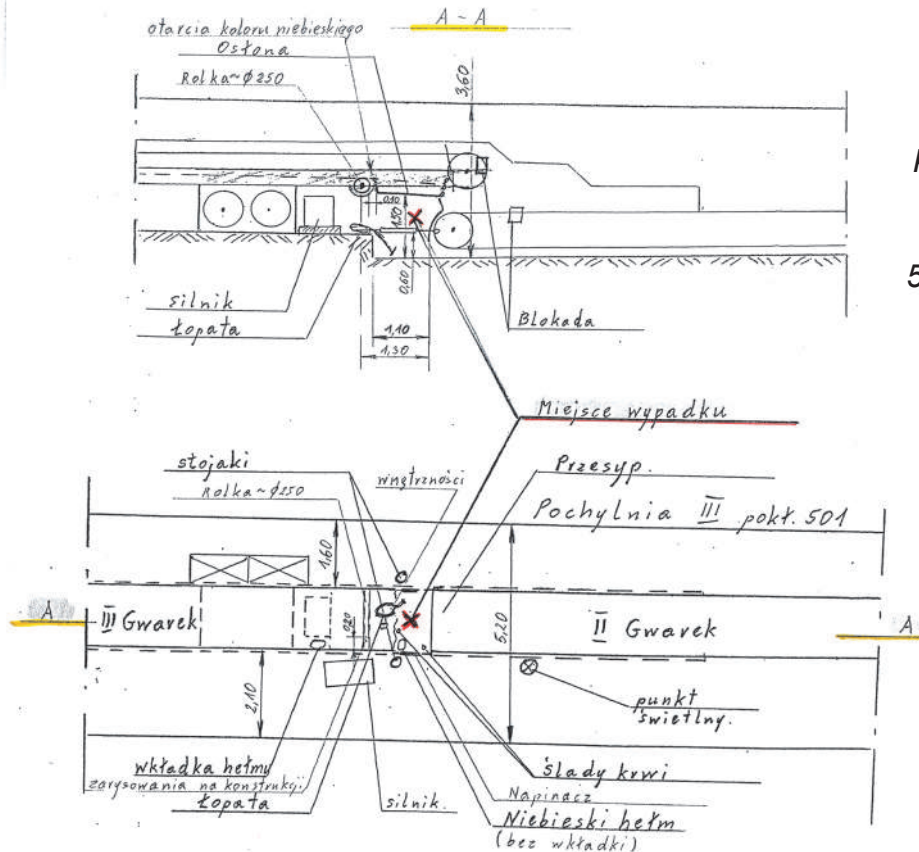 A - A
otarcia koloru niebieskiego
Osłona
Rolka ~ ϕ 250
3,60
0,10
1,50
0,60
silnik
Łopata
1,10
1,30
Blokada
5
Miejsce wypadku
stojaki
Rolka ~ ϕ 250
wnętrzności
Przesyp.
Pochylnia III pokł. 501
1,60
A
III Gwarek
0,20
5,20
II Gwarek
A
2,10
punkt
świetlny.
wkładka hełmu
zarysowania na konstrukcji
Łopata
silnik.
ślady krwi
Napinacz
Niebieski hełm
(bez wkładki)